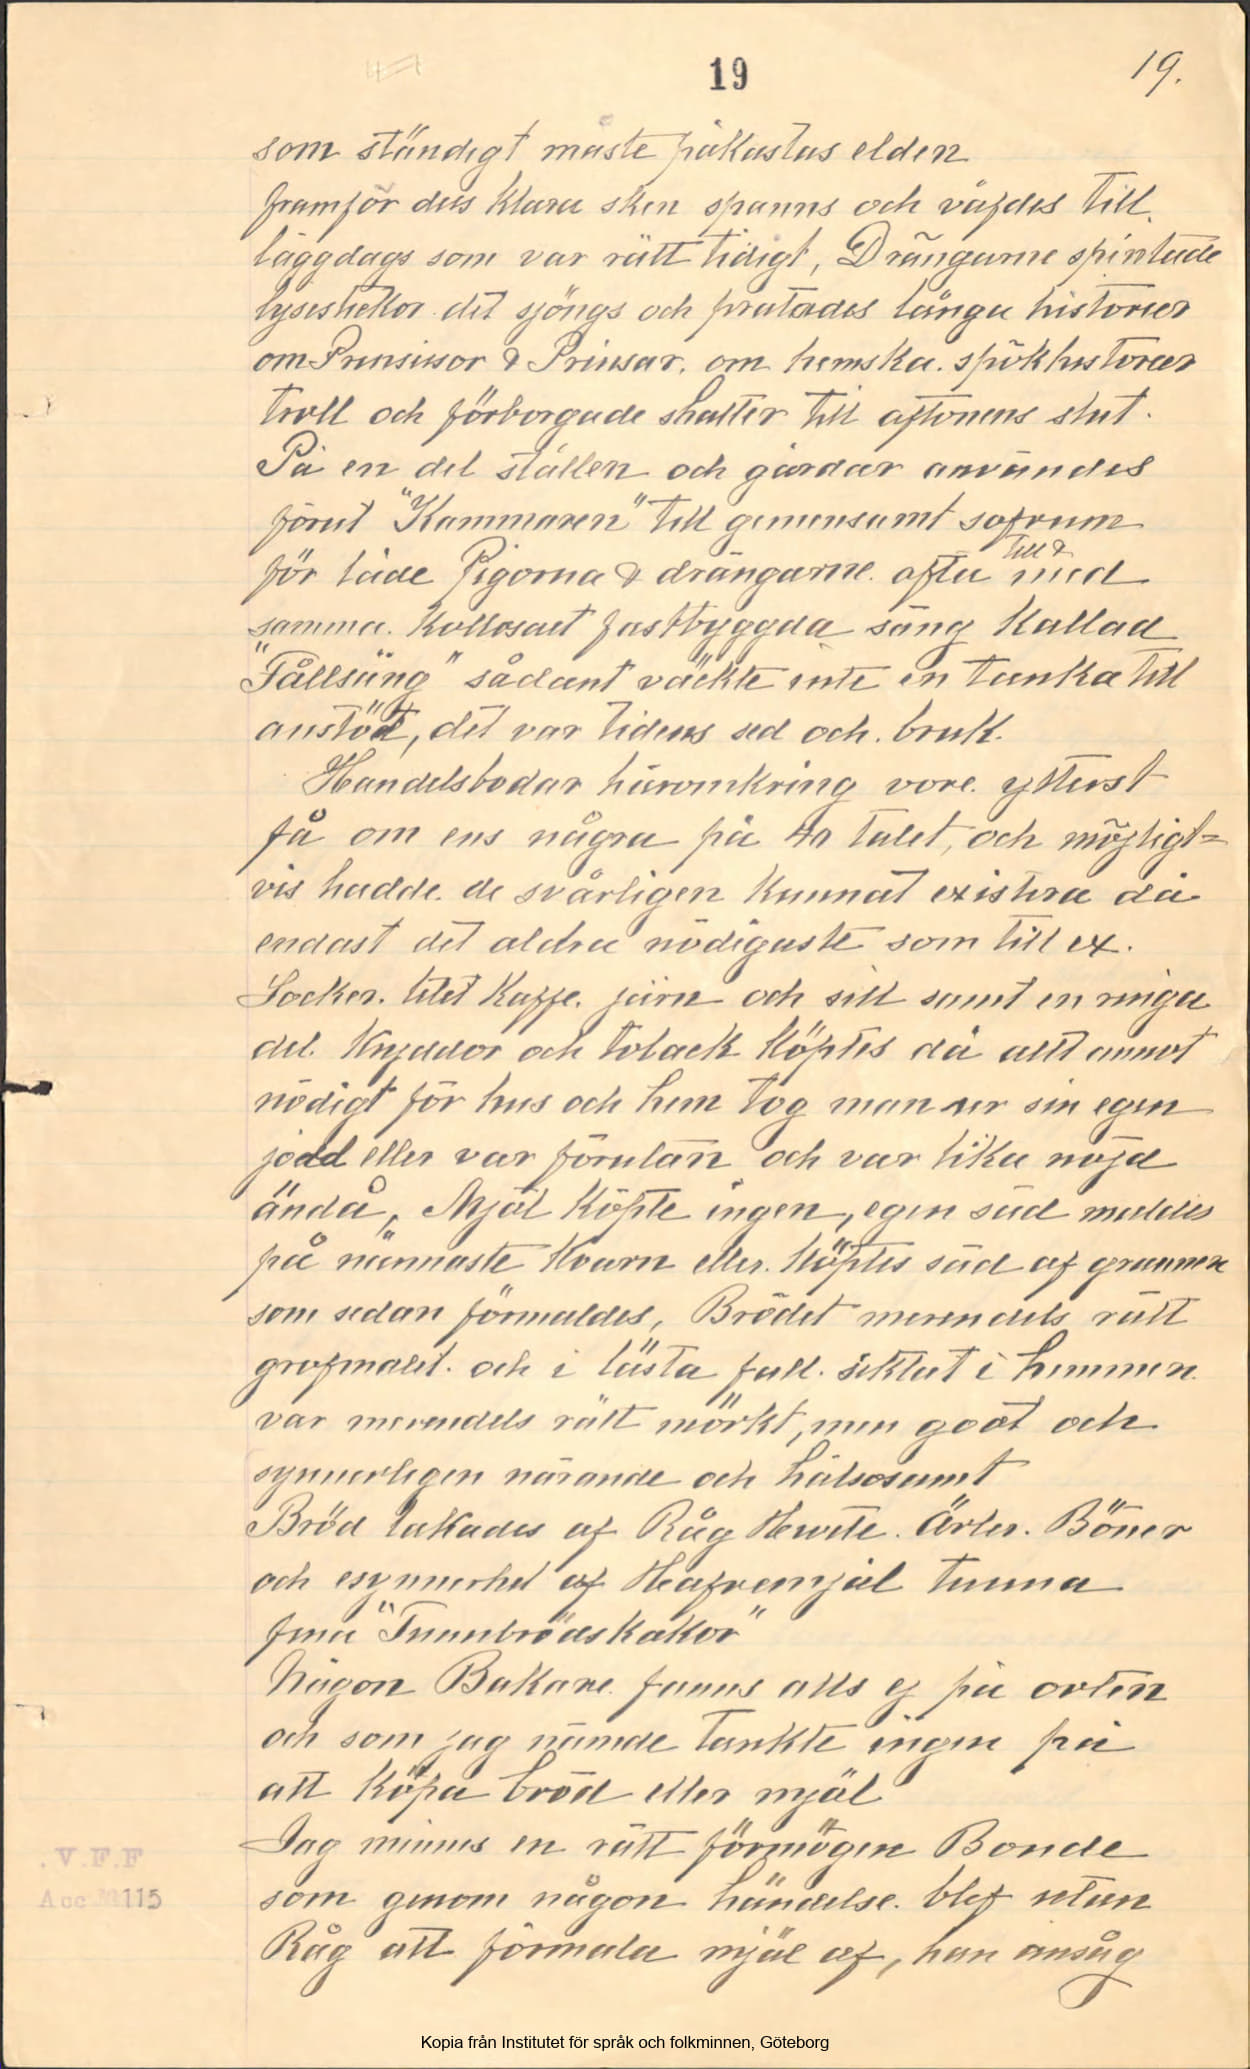 19
19.
som ständigt måste påkastas elden
framför dess klara sken spanns och väfdes till
läggdags som var rätt tidigt, Drängarne spintade
lysestickor det sjöngs och pratades långa historier
om Prinsissor & Prinsar, om hemska spökhistorier
troll och förborgade skatter till aftonens slut.
På en del ställen och gårdar användes
förut "Kammaren" till gemensamt sofrum
för både Pigorna & drängarne. ofta
till &
med
samma. Kollosaet fastbyggda säng kallad
"Fållsäng" sådant väckte inte en tanka till
anstöt, det var tidens sed och bruk.
Handelsbodar häromkring vore ytterst
få om ens några på 40 talet, och möjligt=
vis hadde de svårligen kunnat existera då
endast det aldra nödigaste som till ex.
Socker. litet Kaffe. järn och sill samt en ringa
del. Kryddor och toback köptes då allt annot
nödigt för hus och hem tog man ur sin egen
jord eller var förutan och var lika nöjd
ändå, Mjöl köpte ingen, egen säd maldes
på närmaste Kvarn eller köptes säd af grannen
som sedan förmaldes, Brödet merendels rätt
grofmalet. och i bästa fall. siktat i hemmen.
var merendels rätt mörkt, men godt och
synnerligen närande och hälsosamt
Bröd bakades af Råg Hwete. Ärter. Böner
och esynnerhet af Hafremjöl tunna
fina "Tunnbrödskakor"
Någon Bakare fanns alls ej på orten
och som jag nämde tänkte ingen på
att köpa bröd eller mjöl
Jag minns en rätt förmögen Bonde
som genom någon händelse. blef utan
Råg att förmala mjöl af, han ansåg
V.F.F
Acc № 115
Kopia från Institutet för språk och folkminnen, Göteborg